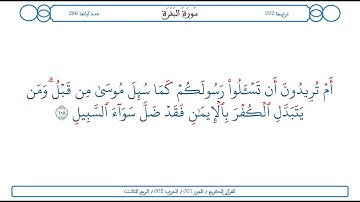 ترتيبها 002 سُورَةُ البَقَرَةِ عدد آياتها 286
أَمْ تُرِيدُونَ أَن تَسْـَٔلُوا۟ رَسُولَكُمْ كَمَا سُئِلَ مُوسَىٰ مِن قَبْلُ ۗ وَمَن
يَتَبَدَّلِ ٱلْكُفْرَ بِٱلْإِيمَـٰنِ فَقَدْ ضَلَّ سَوَآءَ ٱلسَّبِيلِ ١٠٨
القرآن الكريم / الجزء 001 / الحزب 002 / الربع الثالث